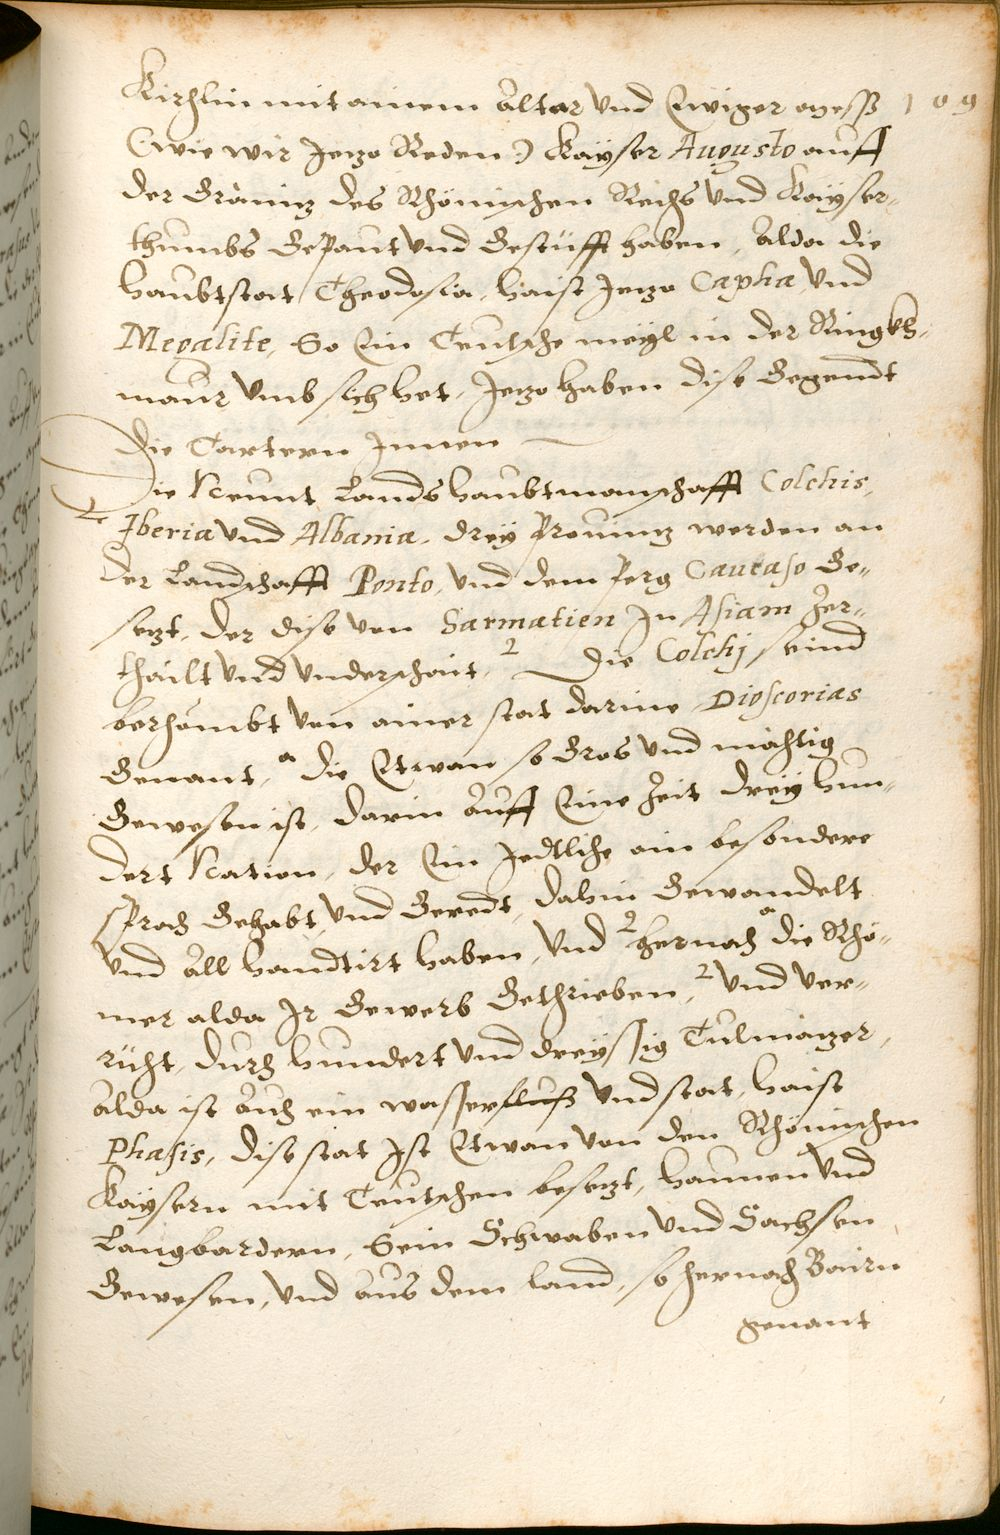 Kirchlin mit ainem Altar vnd Ewiger mess 109
(wie wir Jezo Reden) Kayser Augusto auff
der Gräniz des Rhömischen Reichs vnd Kayser-
thumbs Gepaut vnd Gestüfft haben, Alda die
haubtstat Theodosia, haist Jezo Capha, vnd
Megalite, So Ein Teutsche meyl in der Ringkh-
maur vmb sich het, Jezo haben dise Gegendt
die Tartern Jnnen
Die Neunt Landshaubtmanschafft Colchis,
Iberia vnd Albania, drey Prouinz werden an
der Landschafft Ponto, vnd dem Perg Caucaso Ge-
sezt, der dise von Sarmatien In Asiam Zer-
thailt vnd vnderschait, 2 Die Colchj seind
berhömbt von ainer stat darine Dioscorias
Genant, a die Etwan so Gros vnd mächtig
Gewesen ist, darin auff Eine Zeit drey hun-
dert Nation, der Ein Jedtliche ain besondere
sprach Gehabt, vnd Geredt, dahin Gewandelt
vnd All handtirt haben, vnd 2 hernach a die Rhö-
mer alda Ir Gewerb Gethrieben, 2 vnd ver-
richt, durch hundert vnd dreyssig Tulmäzer,
Alda ist Auch ein wasserfluß vnd stat, haist
Phasis, dise stat Ist Etwan von den Rhömischen
Kaysern mit Teutschen besezt, haunen vnd
Langbardern, Sein Schwaben vnd Sachsen
Gewesen, vnd aus dem land, so hernach Bairn
genant